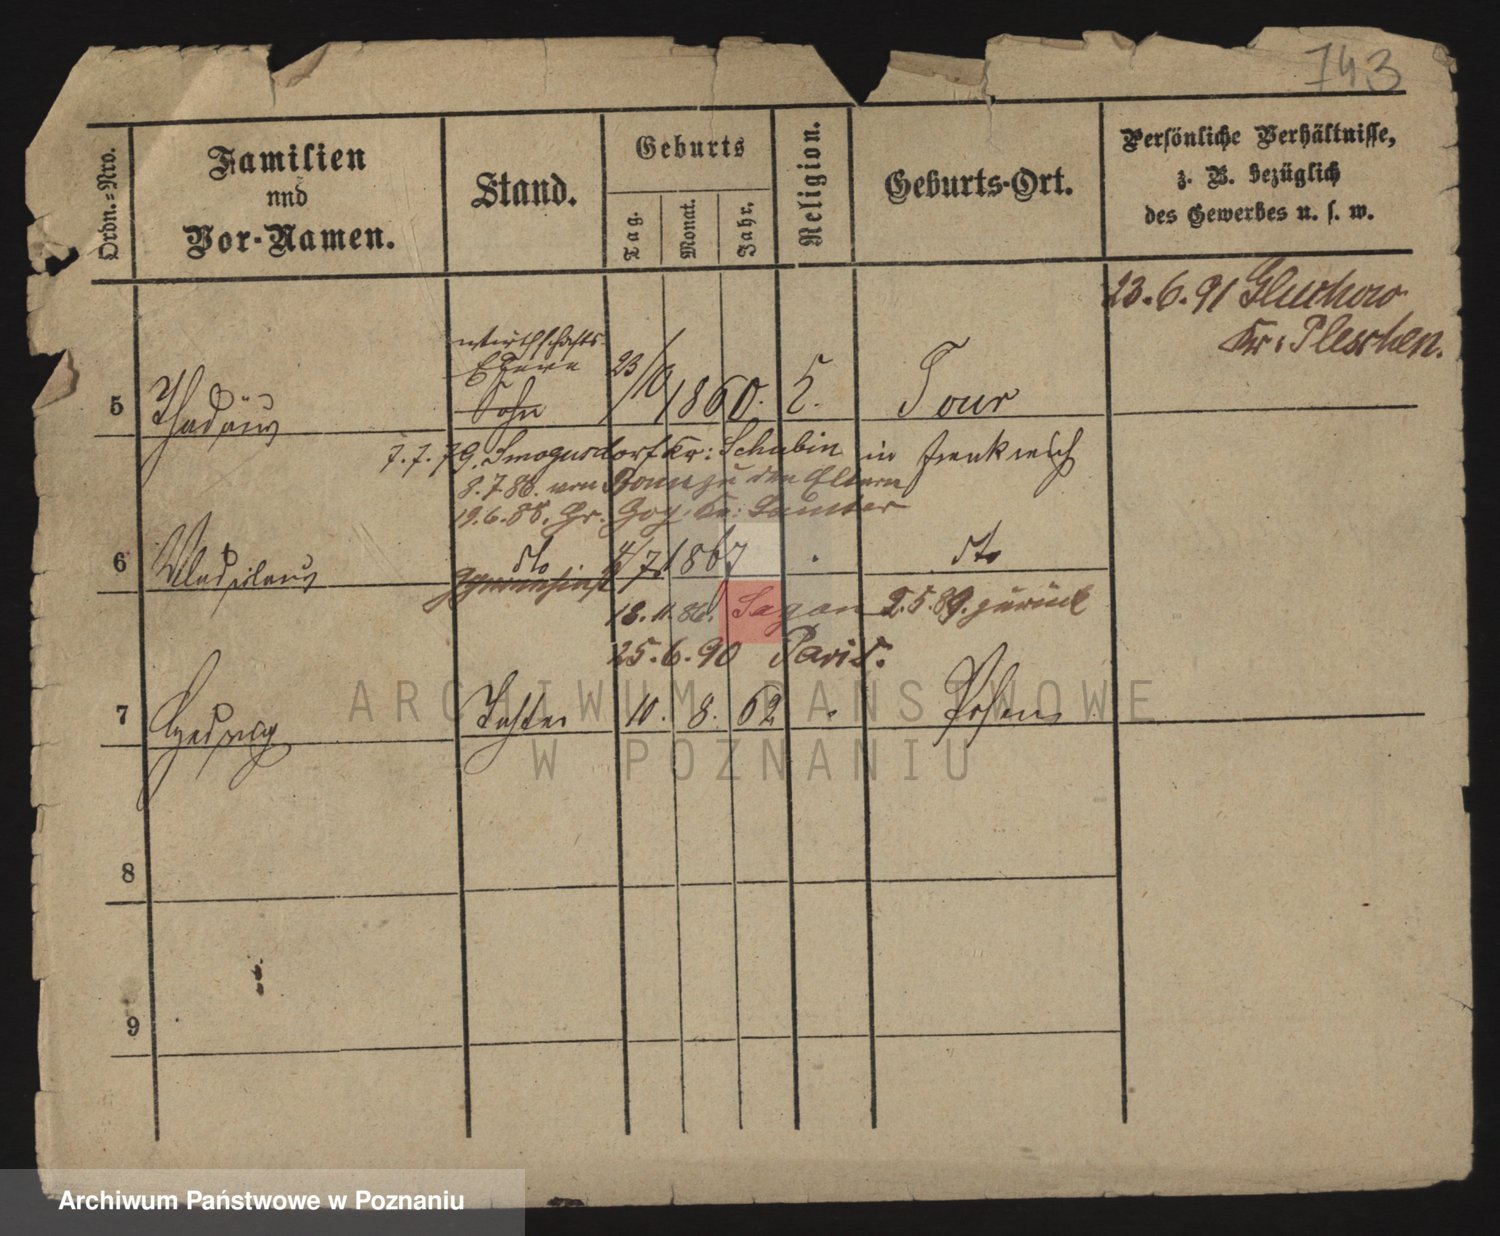 743
Ordn.-Nro.
Familien
und
Vor-Namen.
Stand.
Geburts
Tag.
Monat.
Jahr.
Religion.
Geburts-Ort.
Persönliche Verhältnisse,
z. B. bezüglich
des Gewerbes u. s. w.
23.6.91 Gluchowo
Kr: Pleschen.
wirthschafts-
Eleve
5 Thadäus Sohn 23/10 1860. Tour
7.7.79. Smogusdorf Kr: Schubin in Frankreich
8.7.88. von Bonn zu den Eltern
19.6.88. Gr. Gay. Kr: Samter
6 Wladislaus dto 4/7. 1867 dto
18.11.86. Sagan 2.5.89. zurück
25.6.90 Paris.
7 Hedwig Tochter 10. 8. 62 Posen
8
9
ARCHIWUM PAŃSTWOWE
W POZNANIU
Archiwum Państwowe w Poznaniu